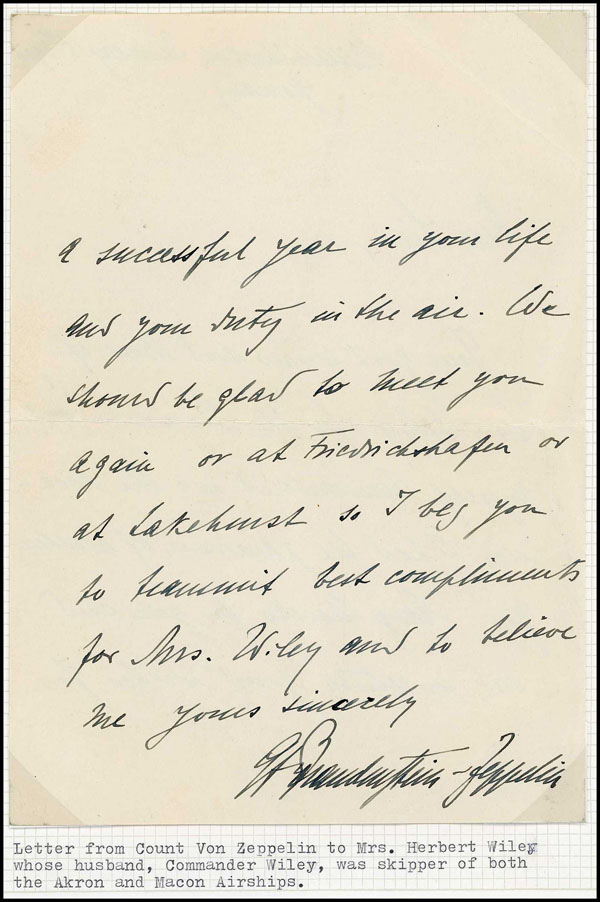 a successful year in your life
and your duty in the air. We
should be glad to meet you
again or at Friedrichshafen or
at Lakehurst so I beg you
to transmit best compliments
for Mrs. Wiley and to believe
me yours sincerely
Brandenstein-Zeppelin
Letter from Count Von Zeppelin to Mrs. Herbert Wiley
whose husband, Commander Wiley, was skipper of both
the Akron and Macon Airships.